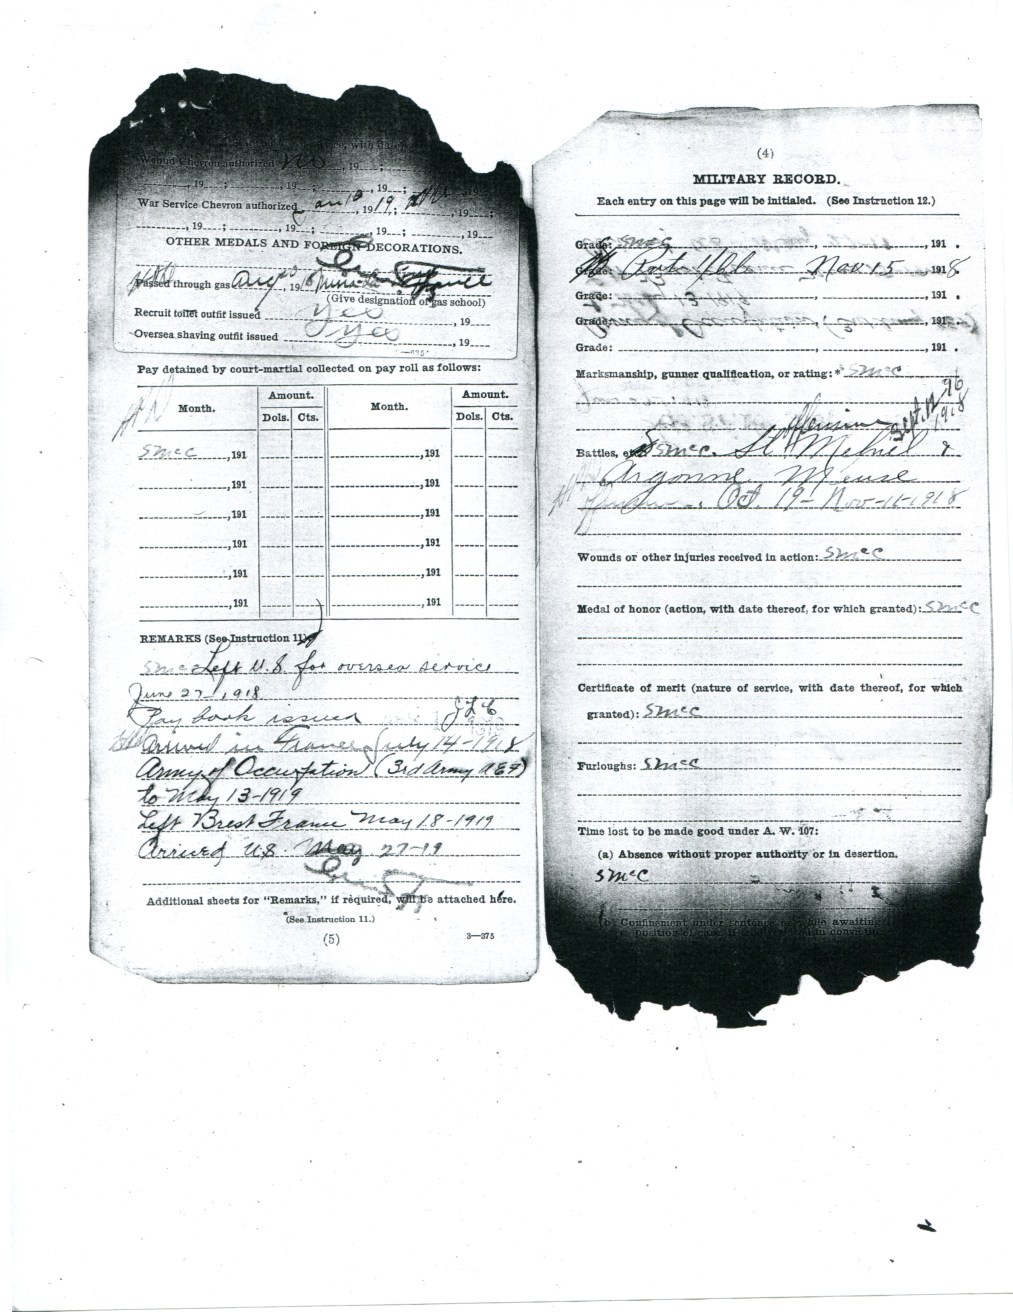 Wound Chevron authorized No, 19
, 19 ; , 19 ; , 19 ;
War Service Chevron authorized Jan 13, 19 19;
, 19 ; , 19 ; , 19 ;
OTHER MEDALS AND FOREIGN DECORATIONS.
Passed through gas Aug 20, 19
(Give designation of gas school)
Recruit toilet outfit issued yes, 19
Oversea shaving outfit issued yes, 19
Pay detained by court-martial collected on pay roll as follows:
Month. Amount. Month. Amount.
Dols. Cts. Dols. Cts.
SMcC , 191 , 191
, 191 , 191
, 191 , 191
, 191 , 191
, 191 , 191
, 191 , 191
REMARKS (See Instruction 11)
SMcC Left U.S. for oversea service
June 27-1918
Pay book issued
Arrived in France July 14-1918
Army of Occupation (3rd Army AEF)
to May 13-1919
Left Brest France May 18-1919
Arrived U.S. May 27-19
Additional sheets for "Remarks," if required, will be attached here.
(See Instruction 11.)
(5) 3—375
(4)
MILITARY RECORD.
Each entry on this page will be initialed. (See Instruction 12.)
Grade: SMcC , 191 .
Grade: Nov 15 1918
Grade: , 191 .
Grade: , 191
Grade: , 191 .
Marksmanship, gunner qualification, or rating:* SMcC
Offensive Sept. 12 - 16 1918
Battles, etc. SMcC. St Mehiel &
Argonne Meuse
Oct. 19- Nov-11-1918
Wounds or other injuries received in action: SMcC
Medal of honor (action, with date thereof, for which granted): SMcC
Certificate of merit (nature of service, with date thereof, for which
granted): SMcC
Furloughs: SMcC
Time lost to be made good under A. W. 107:
(a) Absence without proper authority or in desertion.
SMcC
(b) Confinement under sentence